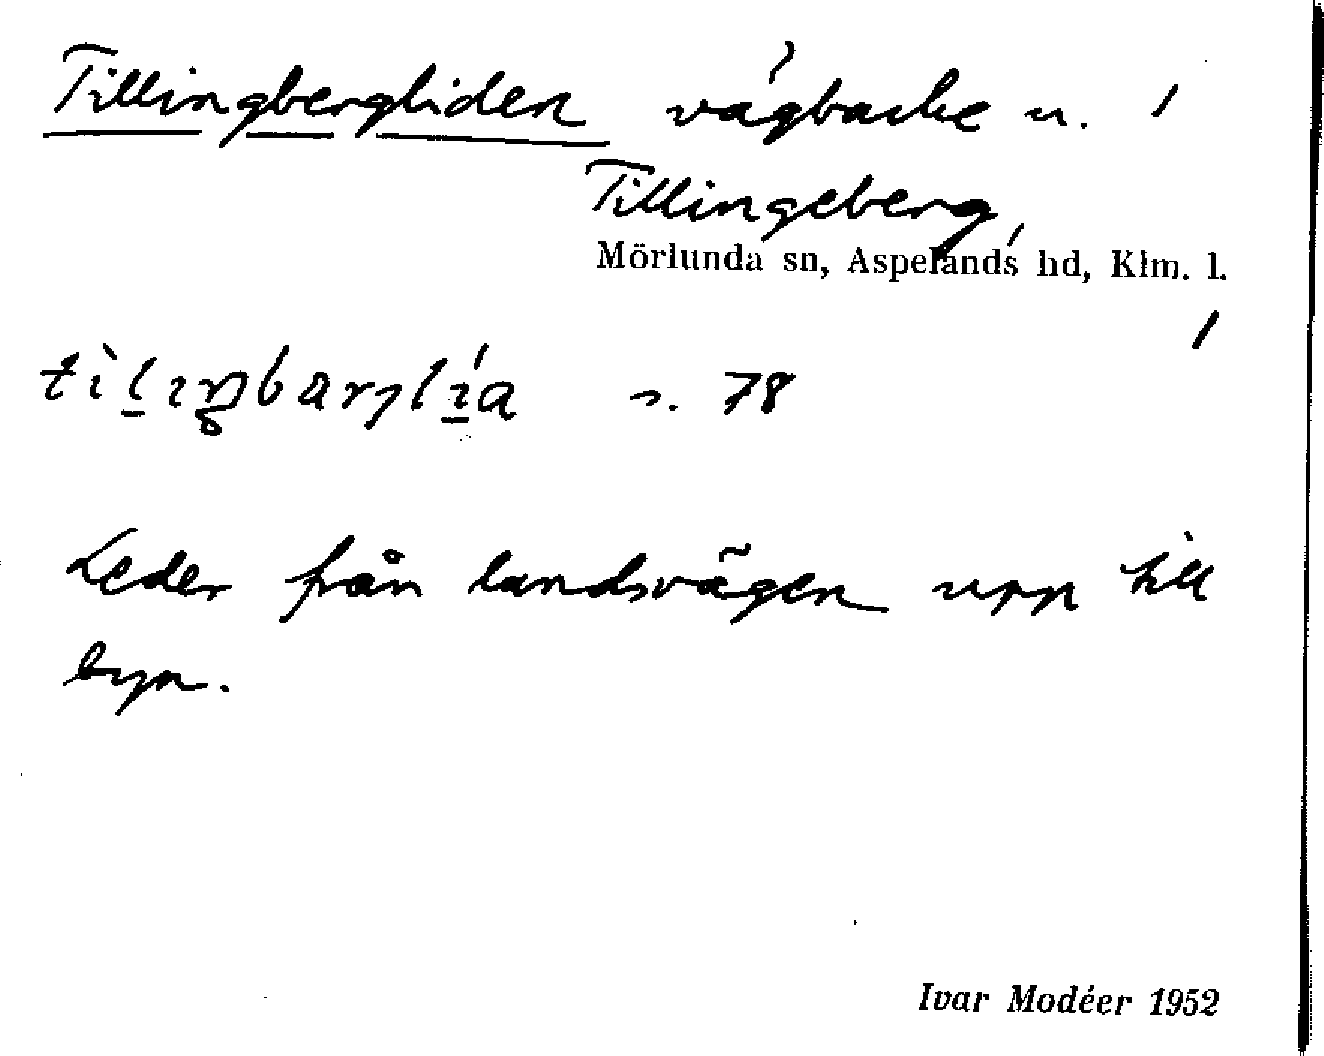 Tillingbergliden vägbacke u.
Tillingeberg,
Mörlunda sn, Aspelands hd, Klm. l.
s. 78
Leder från landsvägen upp till
byn.
Ivar Modéer 1952